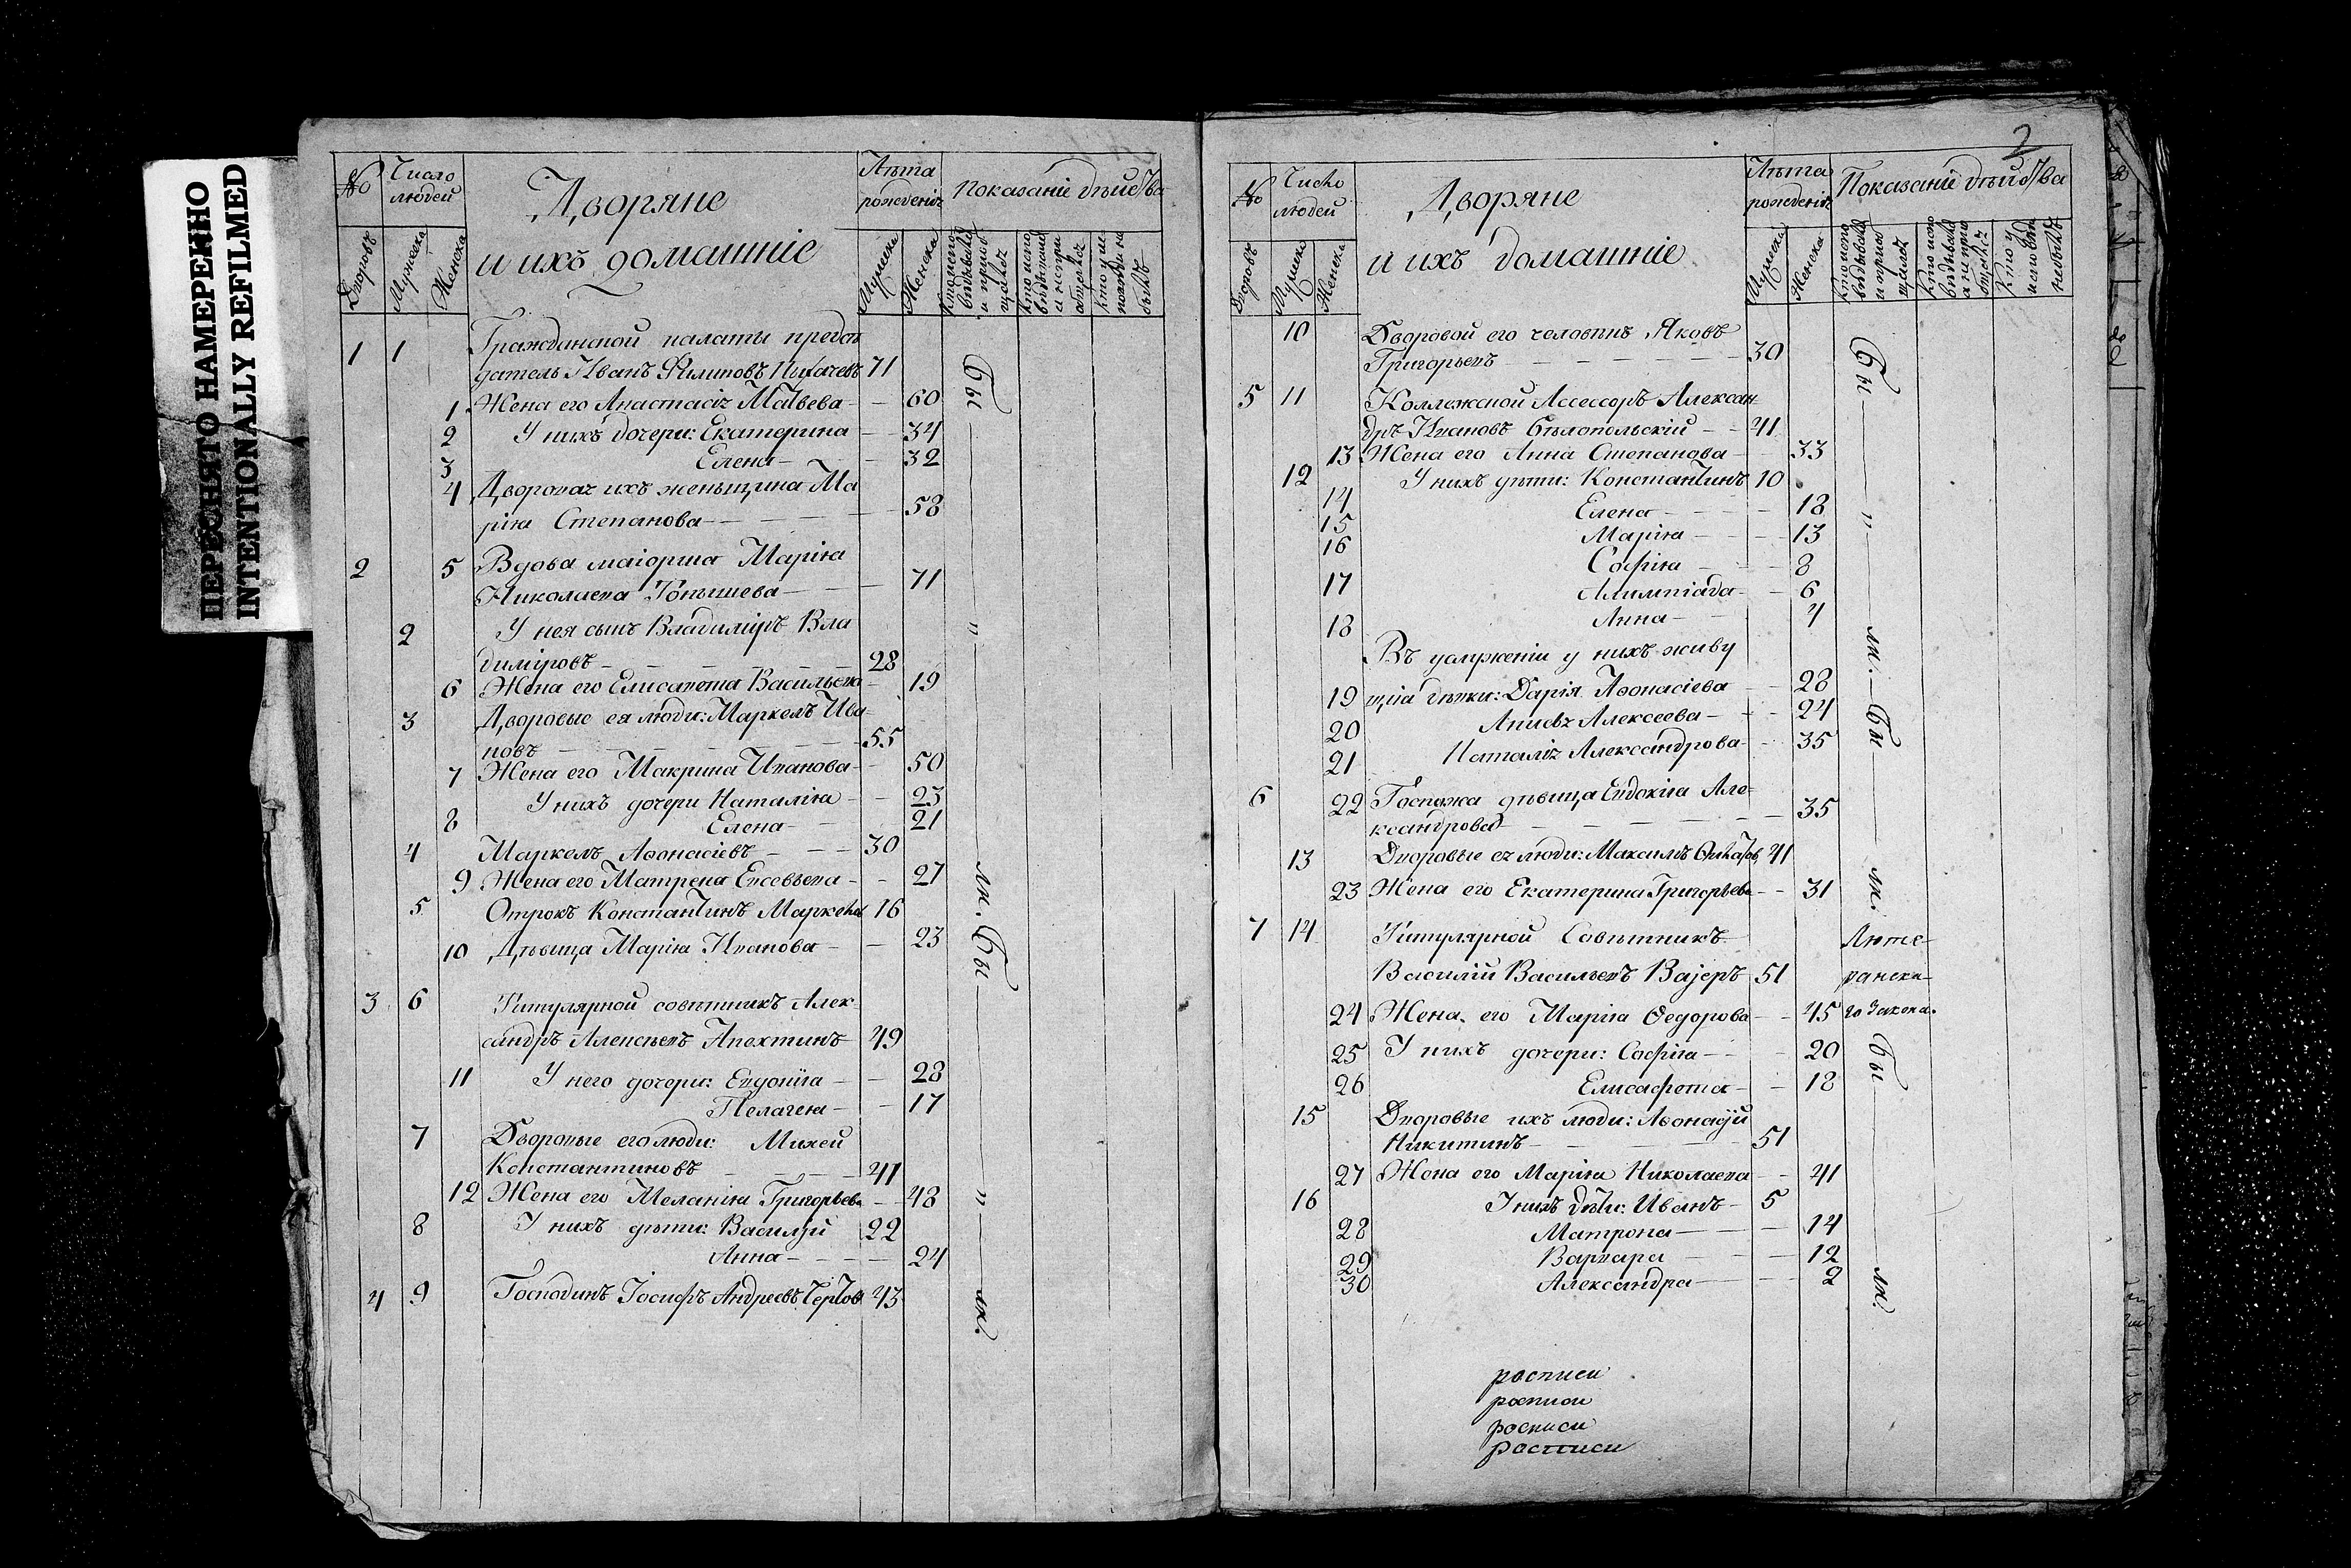 ПЕРЕСНЯТО НАМЕРЕННО
INTENTIONALLY REFILMED
№ Число людей Дворяне и ихъ домашніе Лѣта рожденія Показаніе дѣйства
Дворовъ Мужска Женска Мужска Женска
1 1 Гражданской палаты предсѣ
датель Иванъ Филиповъ Пихачевъ 71
1 Жена его Анастасія Матвева 60
2 У нихъ дочери: Екатерина 34
3 Елена 32
4 Дворовая ихъ женьщина Ма
рія Степанова 58
2 5 Вдова маіорша Марія
Николаева 71
2 У нея сынъ Владиміръ Вла
диміровъ 28
6 Жена его Елисавета Васильева 19
3 Дворовые ея люди: Маркелъ Ива
новъ 55
7 Жена его Макрина Иванова 50
У нихъ дочери Наталія 23
8 Елена 21
4 Маркелъ Аѳонасіевъ 30
9 Жена его Матрена Евсевьева 27
5 Отрокъ Константинъ Маркелов 16
10 Дѣвица Марія Иванова 23
3 6 Титулярной совѣтникъ Алек
сандръ Алексѣевъ Апехтинъ 49
11 У него дочери: Евдокія 28
Пелагея 17
7 Дворовые его люди: Михей
Константиновъ 41
12 Жена его Меланія Григорьева 48
8 У нихъ дѣти: Василій 22
Анна 24
4 9 Господинъ Іосифъ Андреевъ Чертов 43
Бы " ли. Бы " ли.
2
№ Число людей Дворяне и ихъ домашніе Лѣта рожденія Показаніе дѣйства
Дворовъ Мужска Женска Мужска Женска
10 Дворовой его человѣкъ Яковъ
Григорьевъ 30
5 11 Коллежской Ассессоръ Алексан
дръ Ивановъ Бѣлопольскій 41
13 Жена его Анна Степанова 33
12 У нихъ дѣти: Константинъ 10
14 Елена 18
15 Марія 13
16 Софія 8
17 Алимпіада 6
18 Анна 4
Въ услуженіи у нихъ живу
19 щія дѣвки: Дарія Аѳонасіева 28
20 Алексеева 24
21 Наталія Александрова 35
6 22 Госпожа дѣвица Евдокія Але
ксандрова 35
13 Дворовые ея люди: Максимъ 41
23 Жена его Екатерина Григорьева 31
7 14 Титулярной Совѣтникъ Люте
Василій Васильевъ Вајеръ 51 ранска
24 Жена его Марія Ѳедорова 45 го Закона.
25 У нихъ дочери: Софія 20
26 Елисафета 18
15 Дворовые ихъ люди: Аѳонасій
Никитинъ 51
27 Жена его Марія Николаева 41
16 У нихъ дѣти: Иванъ 5
28 Матрона 14
29 Варвара 12
30 Александра 2
Бы " ли. Бы ли.
Бы ли.
росписи
росписи
росписи
росписи